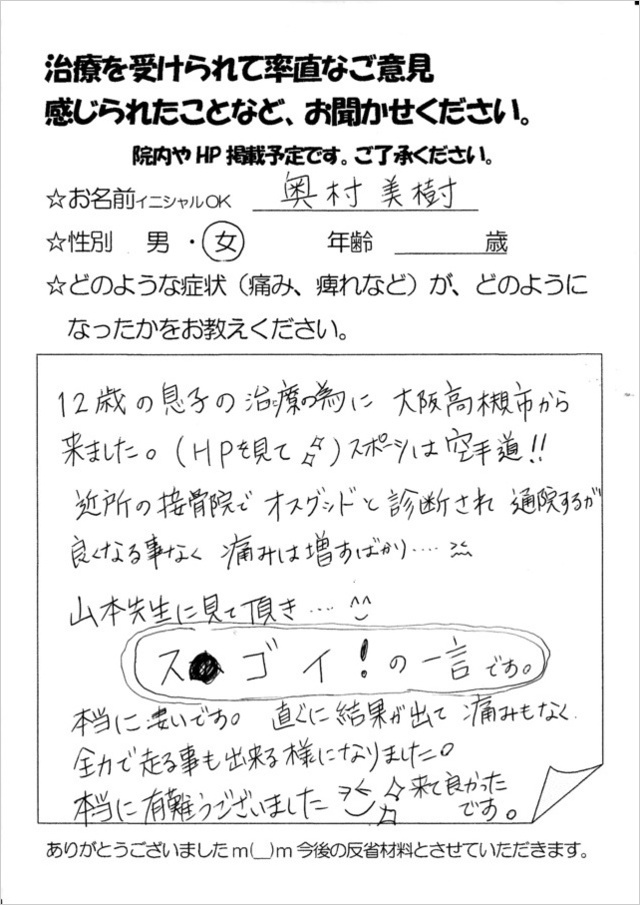 治療を受けられて率直なご意見
感じられたことなど、お聞かせください。
院内やHP掲載予定です。ご了承ください。
☆お名前イニシャルOK 奥村美樹
☆性別 男・女 年齢 歳
☆どのような症状（痛み、痺れなど）が、どのように
なったかをお教えください。
12歳の息子の治療の為に 大阪高槻市から
来ました。(HPを見て)スポーツは空手道!!
近所の接骨院でオスグッドと診断され 通院するが
良くなる事なく 痛みは増すばかり....
山本先生に見て頂き.... ^^
ス●ゴイ!の一言です。
本当に凄いです。 直ぐに結果が出て 痛みもなく
全力で走る事も出来る様になりました。
本当に有難うございました 来て良かった
です。
ありがとうございましたm(__)m今後の反省材料とさせていただきます。